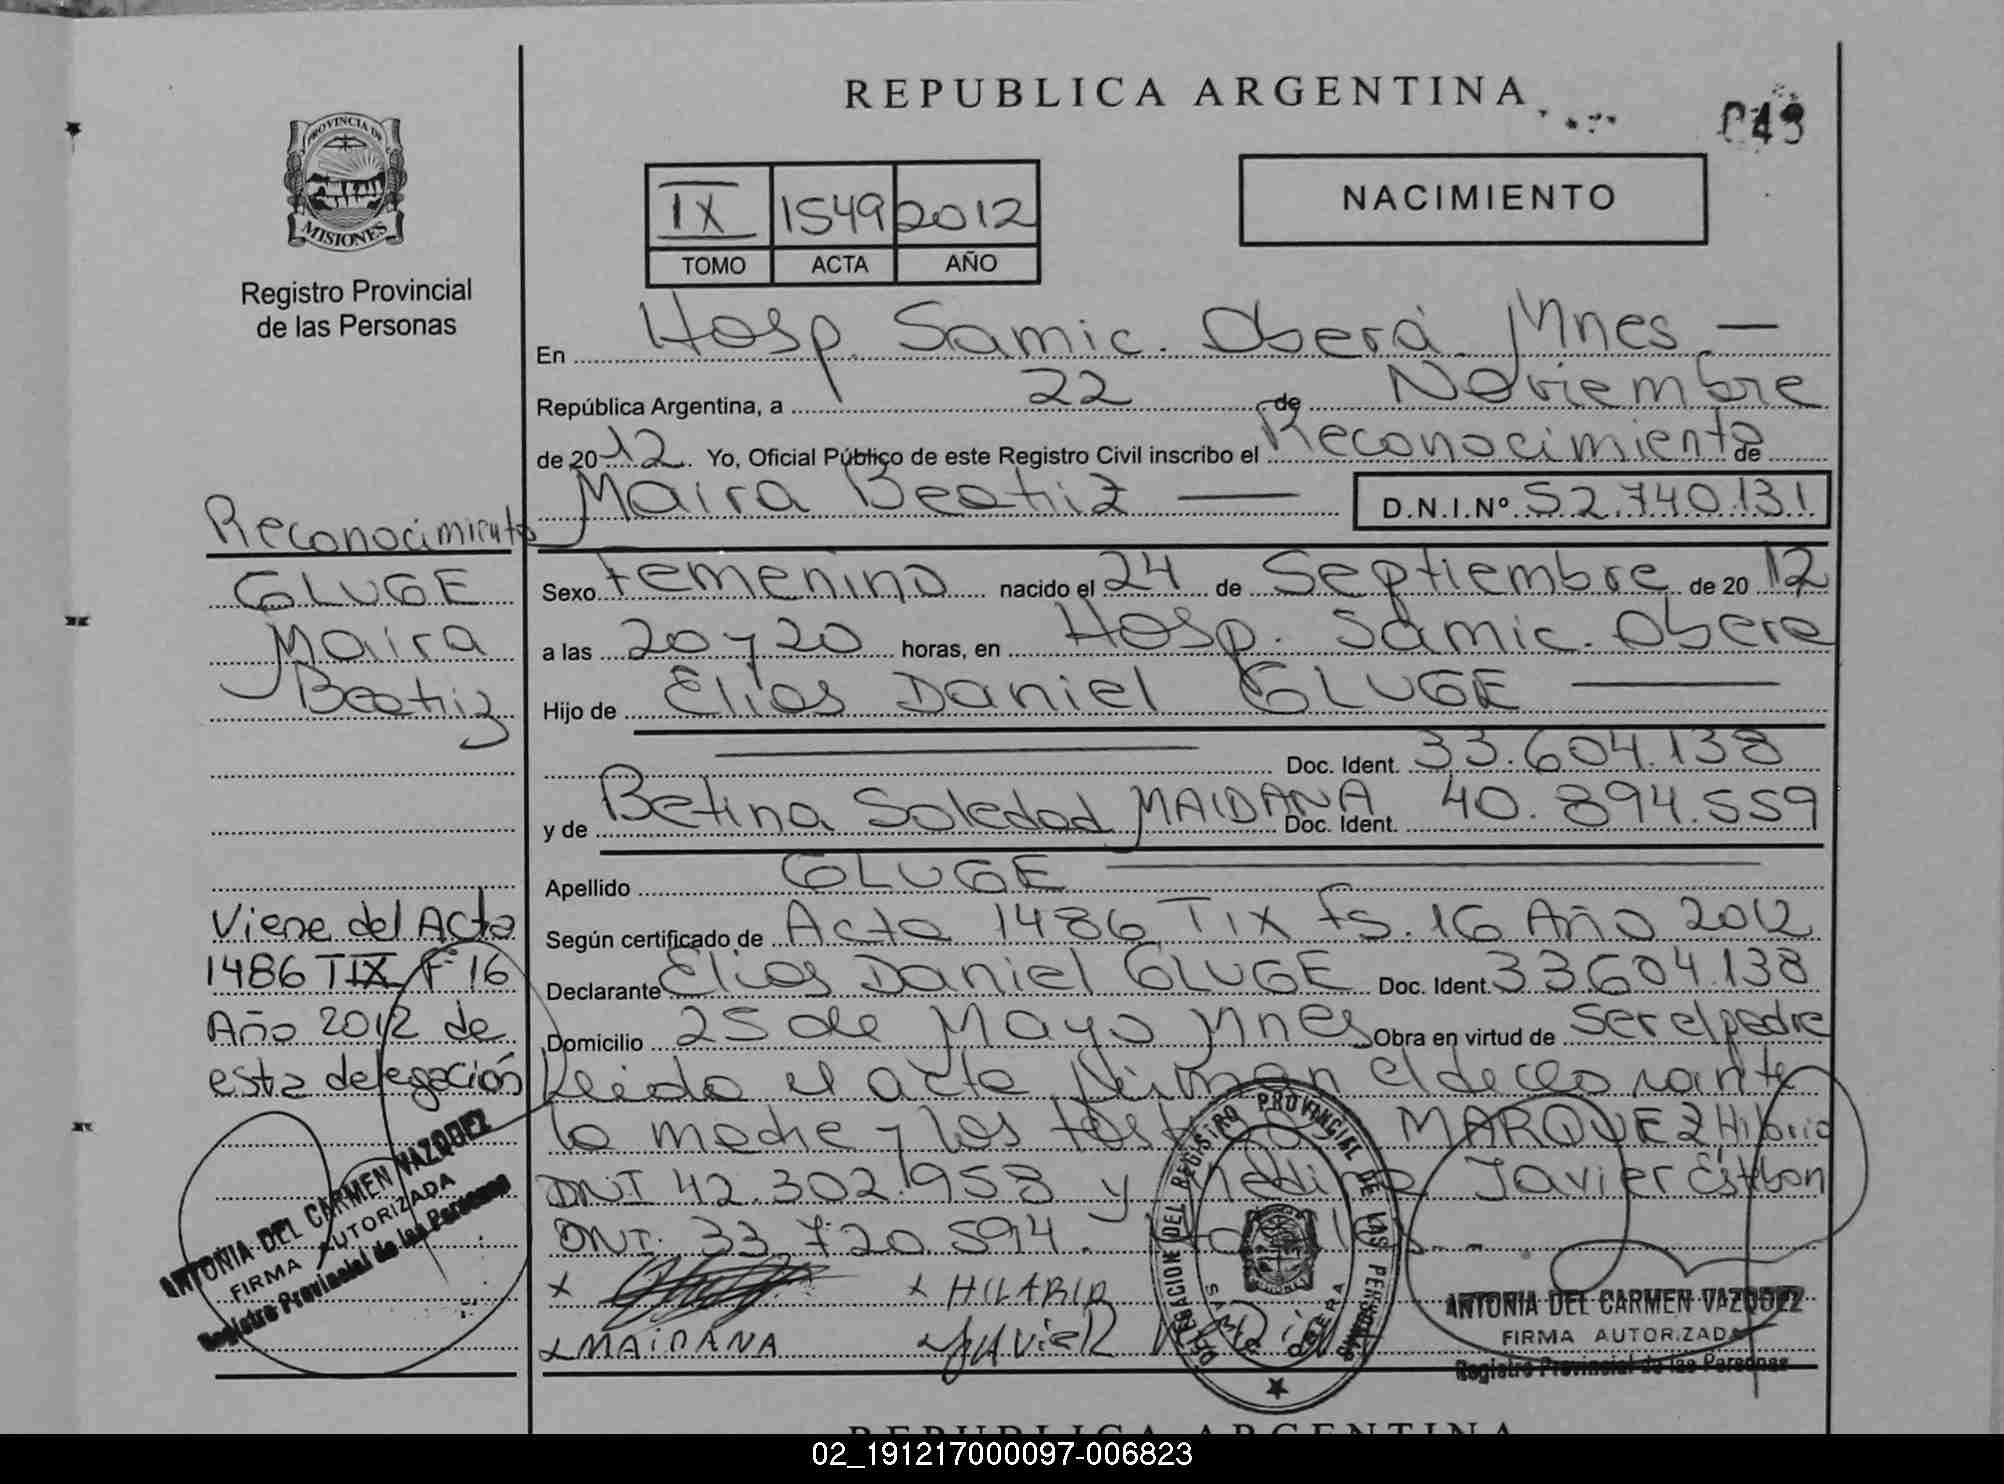 REPUBLICA ARGENTINA
043
PROVINCIA DE
MISIONES
Registro Provincial
de las Personas
IX 1549 2012
TOMO ACTA AÑO
NACIMIENTO
En Hosp. Samic. Oberá Mnes —
República Argentina, a 22 de Noviembre
de 2012. Yo, Oficial Público de este Registro Civil inscribo el Reconocimiento de
Maira Beatriz — D.N.I.Nº 52.740.131
Reconocimiento
GLUGE
Maira
Beatriz
Sexo Femenino nacido el 24 de Septiembre de 2012
a las 20 y 20 horas, en Hosp. Samic. Obera
Hijo de Elias Daniel GLUGE —
Doc. Ident. 33.604.138
y de Betina Soledad MAIDANA Doc. Ident. 40.894.559
Apellido GLUGE —
Según certificado de Acta 1486 TIX Fs. 16 Año 2012
Declarante Elias Daniel GLUGE Doc. Ident. 33604.138
Domicilio 25 de Mayo Mnes Obra en virtud de ser el padre
Viene del Acta
1486 TIX F 16
Año 2012 de
esta delegación
Leida el acta firman el declarante
la madre y los testigos MARQUEZ Hilario
DNI 42.302.958 y Medina Javier Estban
DNI. 33.720.594.
x x HILARIO
x MAIDANA x JAVIER
DELEGACION DEL REGISTRO PROVINCIAL DE LAS PERSONAS
SAMIC OBERA
ANTONIA DEL CARMEN VAZQUEZ
FIRMA AUTORIZADA
Registro Provincial de las Personas
ANTONIA DEL CARMEN VAZQUEZ
FIRMA AUTORIZADA
Registro Provincial de las Personas
REPUBLICA ARGENTINA
02_191217000097-006823